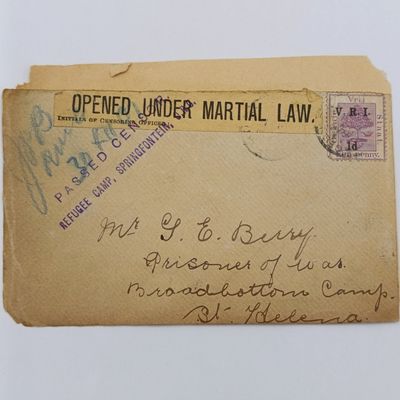 OPENED UNDER MARTIAL LAW.
INITIALS OF CENSORING OFFICER
PASSED CENSOR
REFUGEE CAMP, SPRINGFONTEIN,
Vrij
Staat
V. R. I.
1d
Een Penny.
Mr G. E. Bury.
Prisoner of War.
Broadbottom Camp.
St. Helena.